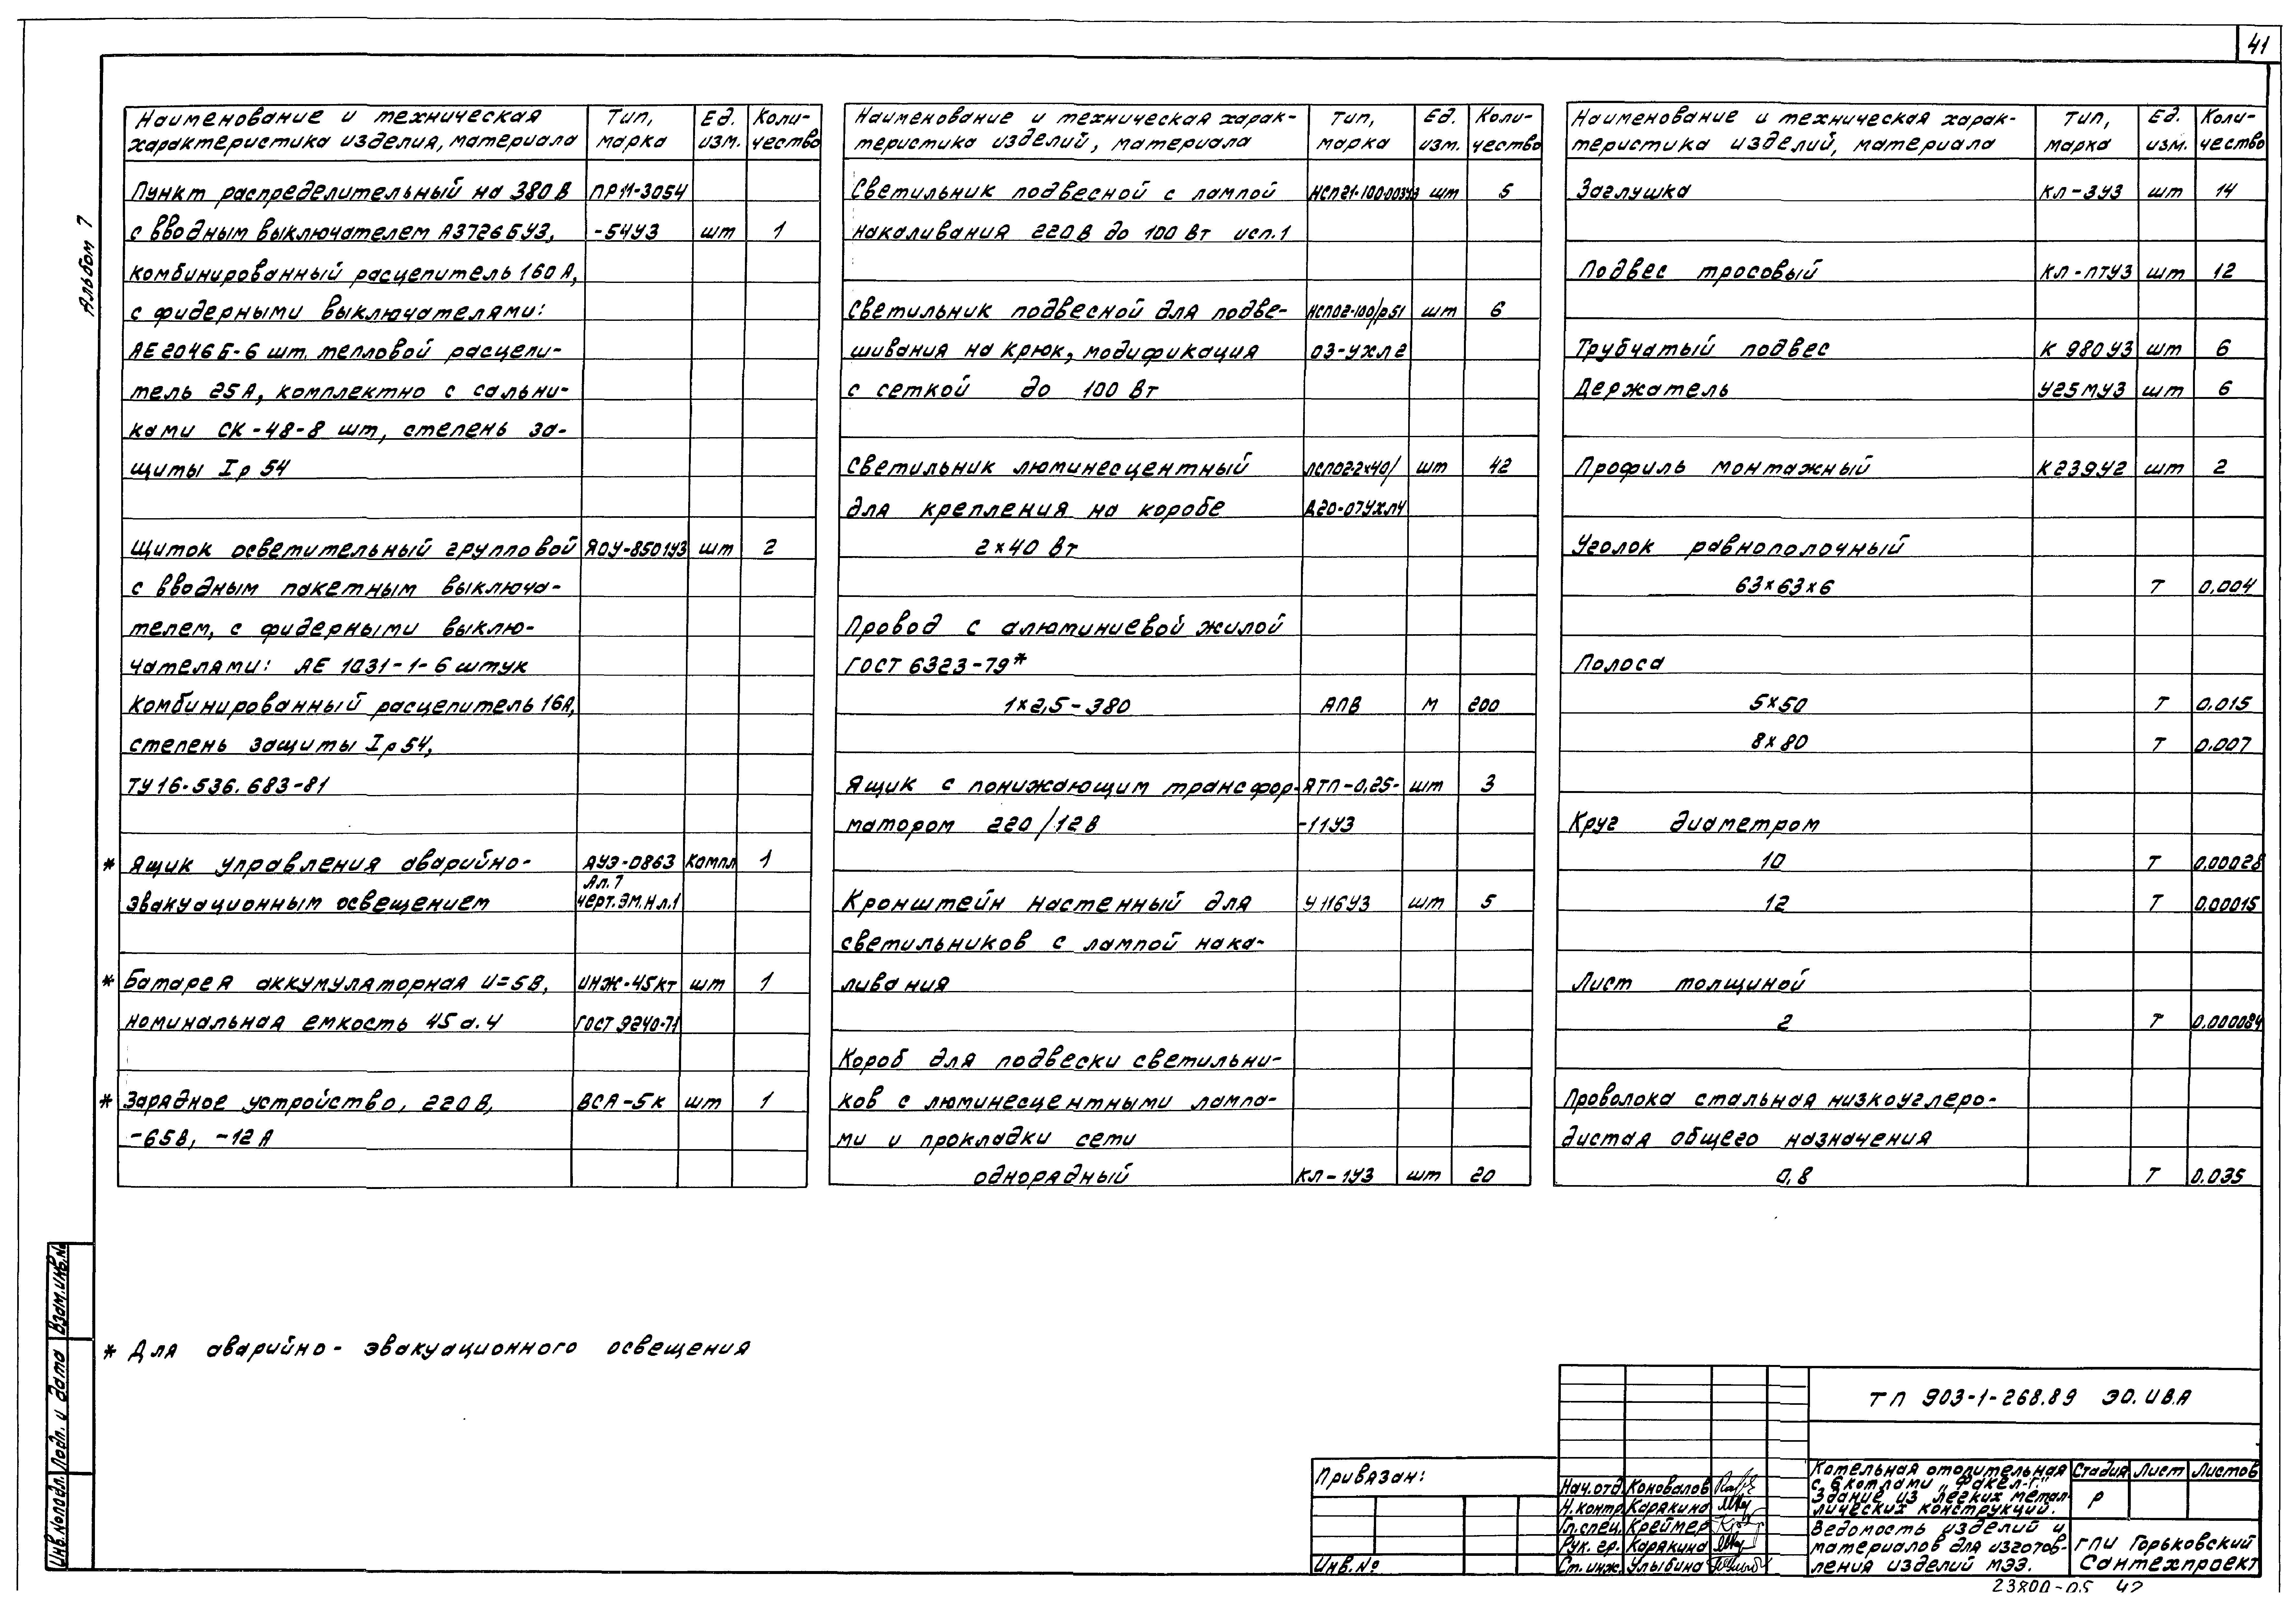 41
Альбом 7
Наименование и техническая характеристика изделия, материала | Тип, марка | Ед. изм. | Коли-чество
Пункт распределительный на 380 В | ПР11-3054
с вводным выключателем А3726БУ3, | -54У3 | шт | 1
комбинированный расцепитель 160 А,
с фидерными выключателями:
АЕ2046Б-6 шт. тепловой расцепи-
тель 25А, комплектно с сальни-
ками СК-48-8 шт, степень за-
щиты Ip 54
Щиток осветительный групповой | ЯОУ-8501У3 | шт | 2
с вводным пакетным выключа-
телем, с фидерными выклю-
чателями: АЕ 1031-1-6 штук
Комбинированный расцепитель 16А,
степень защиты Ip 54,
ТУ16-536.683-81
* Ящик управления аварийно- | АУЭ-0863 | Компл | 1
Ал. 7
эвакуационным освещением | черт.ЭМ.Н л.1
* Батарея аккумуляторная U=5В, | ИНЖ-45КТ | шт | 1
номинальная емкость 45 а.ч | ГОСТ 9240-71
* Зарядное устройство, 220 В, | ВСА-5К | шт | 1
-65В, -12 А
* Для аварийно- эвакуационного освещения
Наименование и техническая харак-теристика изделий, материала | Тип, марка | Ед. изм. | Коли-чество
Светильник подвесной с лампой | НСП21-100-003У3 | шт | 5
накаливания 220 В до 100 Вт исп.1
Светильник подвесной для подве- | НСП02-100/р51 | шт | 6
шивания на крюк, модификация | 03-УХЛ2
с сеткой до 100 Вт
Светильник люминесцентный | ЛСП02-2х40/ | шт | 42
для крепления на коробе | Д20-07УХЛ4
2×40 Вт
Провод с алюминиевой жилой
ГОСТ 6323-79*
1×2,5-380 | АПВ | М | 200
Ящик с понижающим трансфор- | ЯТП-0,25- | шт | 3
матором 220/12В | -11У3
Кронштейн настенный для | У116У3 | шт | 5
светильников с лампой нака-
ливания
Короб для подвески светильни-
ков с люминесцентными лампа-
ми и прокладки сети
однорядный | КЛ-1У3 | шт | 20
Наименование и техническая харак-теристика изделий, материала | Тип, марка | Ед. изм. | Коли-чество
Заглушка | КЛ-3У3 | шт | 14
Подвес тросовый | КЛ-ПТУ3 | шт | 12
Трубчатый подвес | К 980У3 | шт | 6
Держатель | У25МУ3 | шт | 6
Профиль монтажный | К239У2 | шт | 2
Уголок равнополочный
63×63×6 | Т | 0.004
Полоса
5×50 | Т | 0.015
8×80 | Т | 0.007
Круг диаметром
10 | Т | 0.00028
12 | Т | 0.00015
Лист толщиной
2 | Т | 0.000084
Проволока стальная низкоуглеро-
дистая общего назначения
0,8 | Т | 0.035
ТП 903-1-268.89 ЭО.ИВА
Котельная отопительная
с 6 котлами „Факел-Г".
Здание из легких метал-
лических конструкций.
Стадия | Лист | Листов
Р
Ведомость изделий и
материалов для изготов-
ления изделий МЭЗ.
ГПИ Горьковский
Сантехпроект
Привязан:
Инв.№
Нач.отд | Коновалов
Н.контр | Карякина
Гл.спец. | Креймер
Рук. гр. | Карякина
Ст.инж. | Улыбина
Инв.№подл. | Подп. и дата | Взам.инв.№
23800-05 42